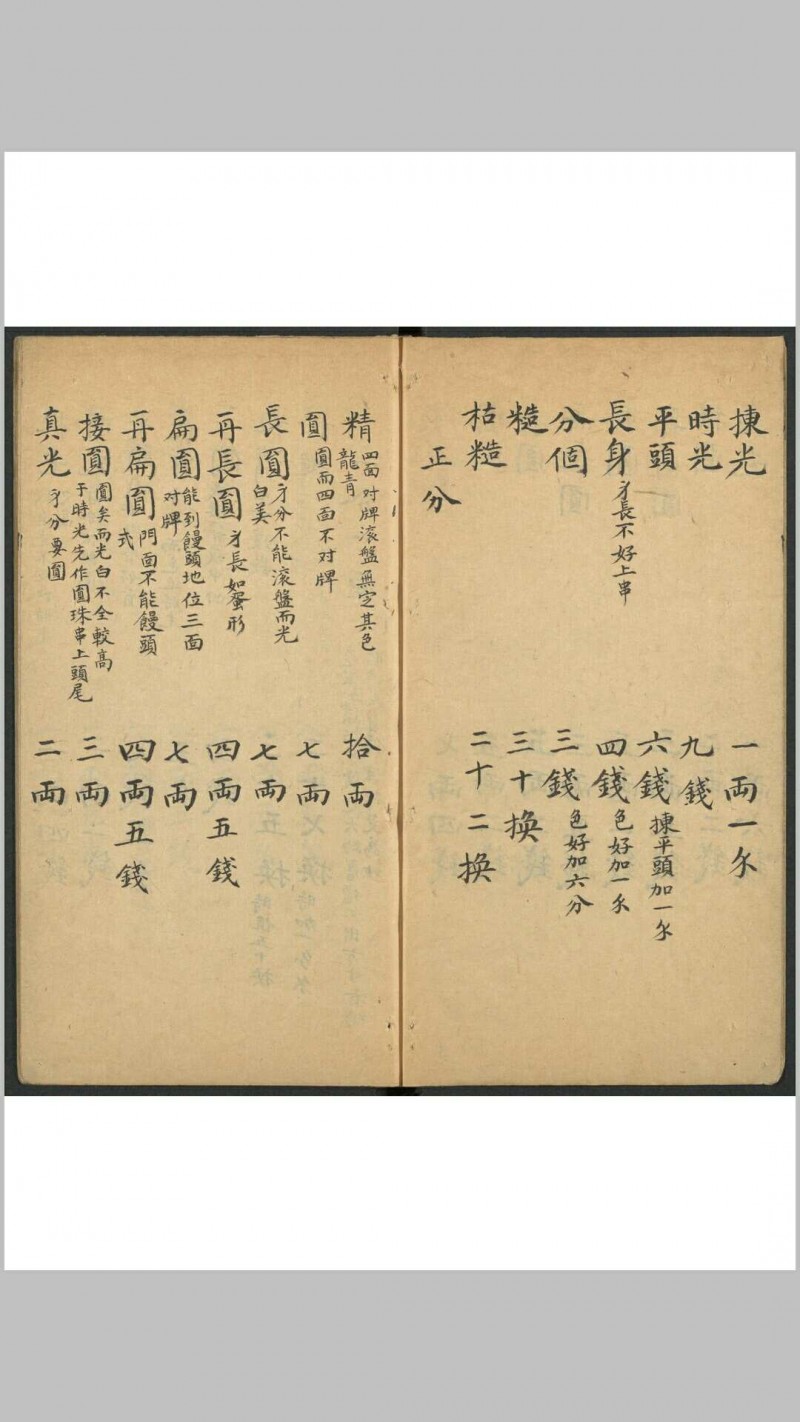 揀光 一両一
時光 九錢
平頭 六錢 揀平頭加一
長身 身長不好上串 四錢 色好加一
分個 三錢 色好加六分
糙 三十換
枯糙 二十二換
正分
精 四面对牌滚盤無定其色龍青 拾両
圎 圎而四面不对牌 七両
長圎 身分不能滚盤而光白美 七両
再長圎 身長如蛋形 四両五錢
扁圎 能到饅頭地位三面对牌 七両
再扁圎 門面不能饅頭式 四両五錢
接圎 圎矣而光白不全較高于時光先作圎珠串上頭尾 三両
真光 身分要圎 二両